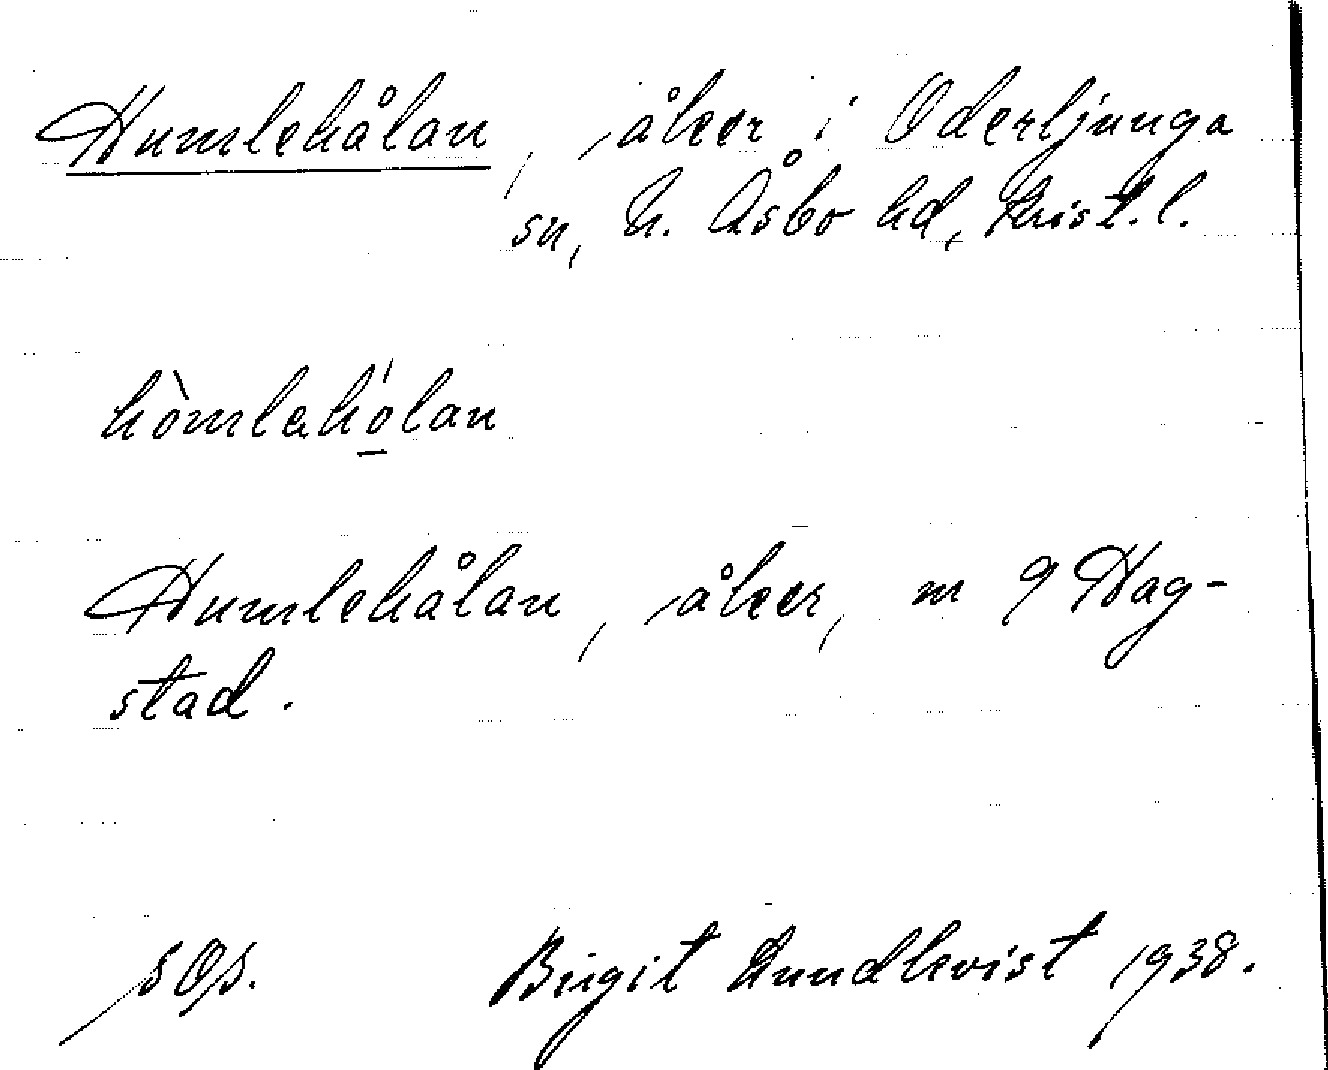 Humlehålan, åker i Oderljunga
sn, N. Åsbo hd, Krist. l.
hòmlahó̱lan
Humlehålan, åker, m 9 Hag-
stad.
Birgit Lundkvist 1938.